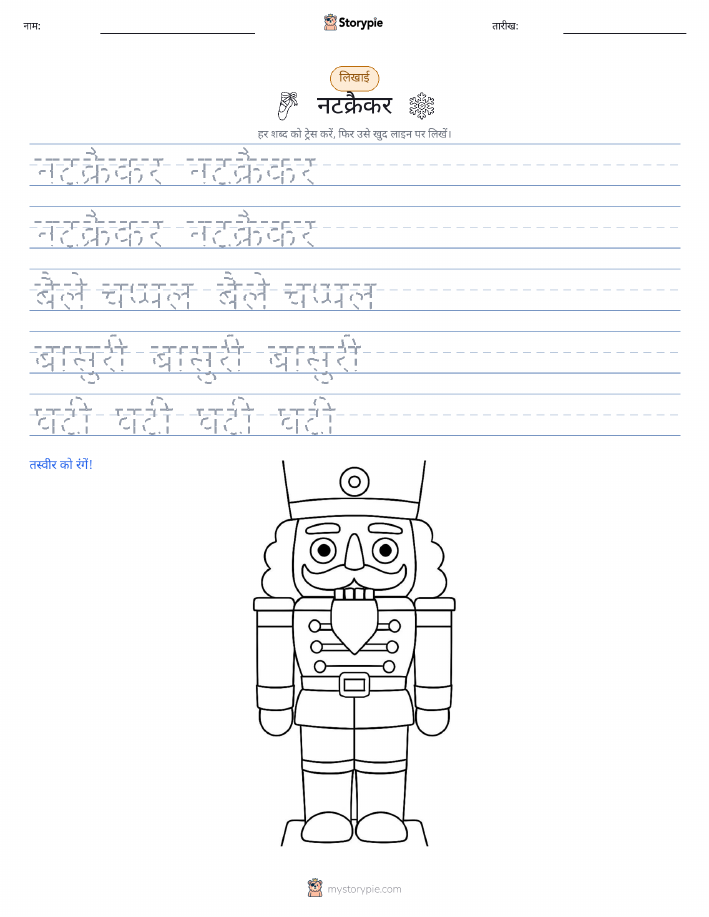 नाम: Storypie तारीख:
लिखाई
नटक्रैकर
हर शब्द को ट्रेस करें, फिर उसे खुद लाइन पर लिखें।
नटक्रैकर नटक्रैकर
नटक्रैकर नटक्रैकर
बैले चप्पल बैले चप्पल
बासुरी बासुरी बासुरी
घटी घटी घटी घटी
तस्वीर को रंगें!
mystorypie.com